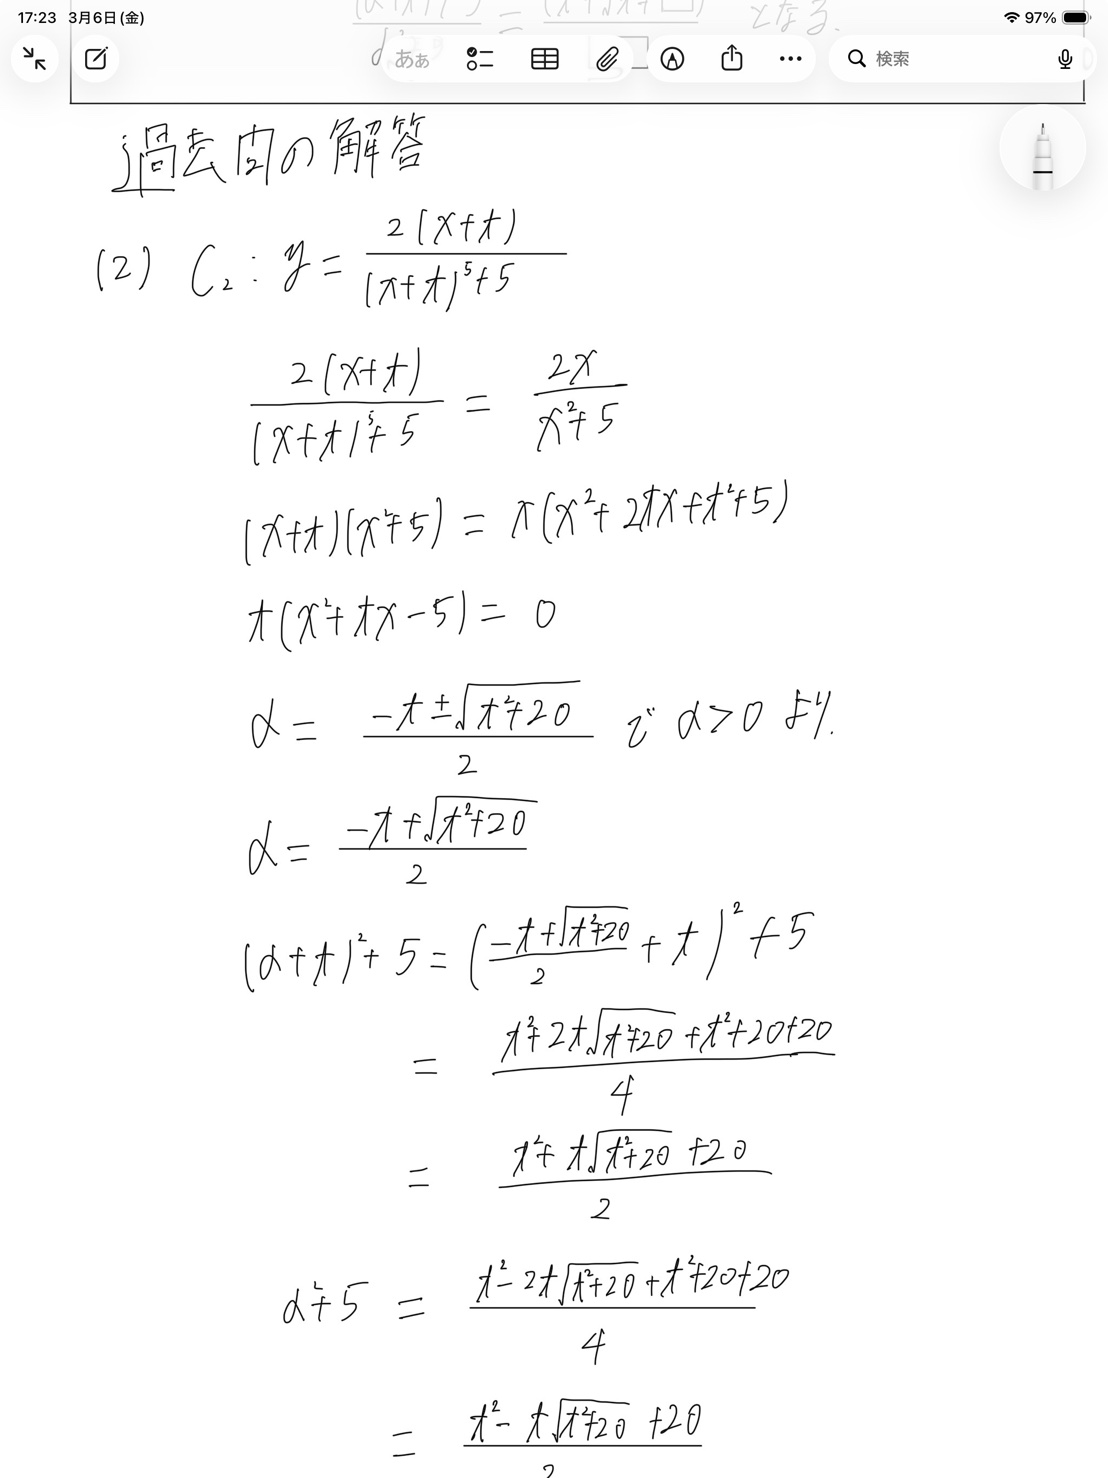 17:23 3月6日(金) 97%
となる.
あぁ 検索
過去問の解答
(2) C₂ : y = 2(x+t) / (x+t)⁵+5
2(x+t) / (x+t)⁵+5 = 2x / x²+5
(x+t)(x²+5) = x(x²+2tx+t²+5)
t(x²+tx-5) = 0
α = -t±√t²+20 / 2 で α>0 より.
α = -t+√t²+20 / 2
(α+t)²+5 = (-t+√t²+20 / 2 + t)²+5
= t²+2t√t²+20 +t²+20+20 / 4
= t²+t√t²+20 +20 / 2
α²+5 = t²-2t√t²+20 +t²+20+20 / 4
= t²-t√t²+20 +20 / 2